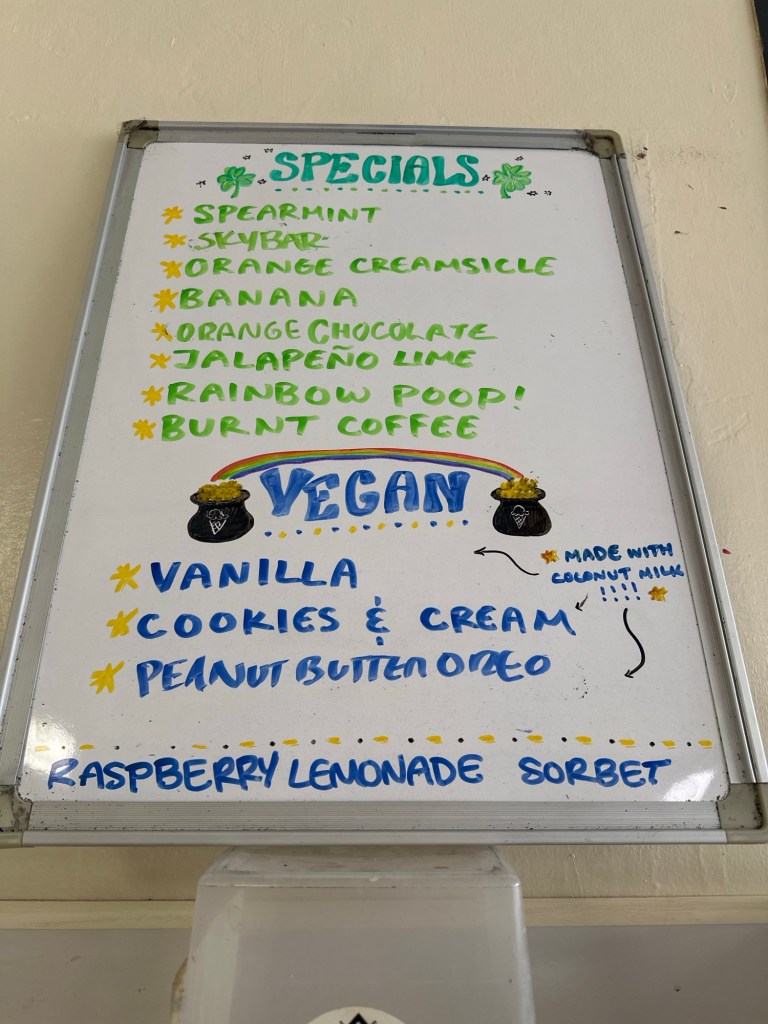 SPECIALS
SPEARMINT
SKYBAR
ORANGE CREAMSICLE
BANANA
ORANGE CHOCOLATE
JALAPEÑO LIME
RAINBOW POOP!
BURNT COFFEE
VEGAN
MADE WITH
COCONUT MILK
!!!!
VANILLA
COOKIES & CREAM
PEANUT BUTTER OREO
RASPBERRY LEMONADE SORBET